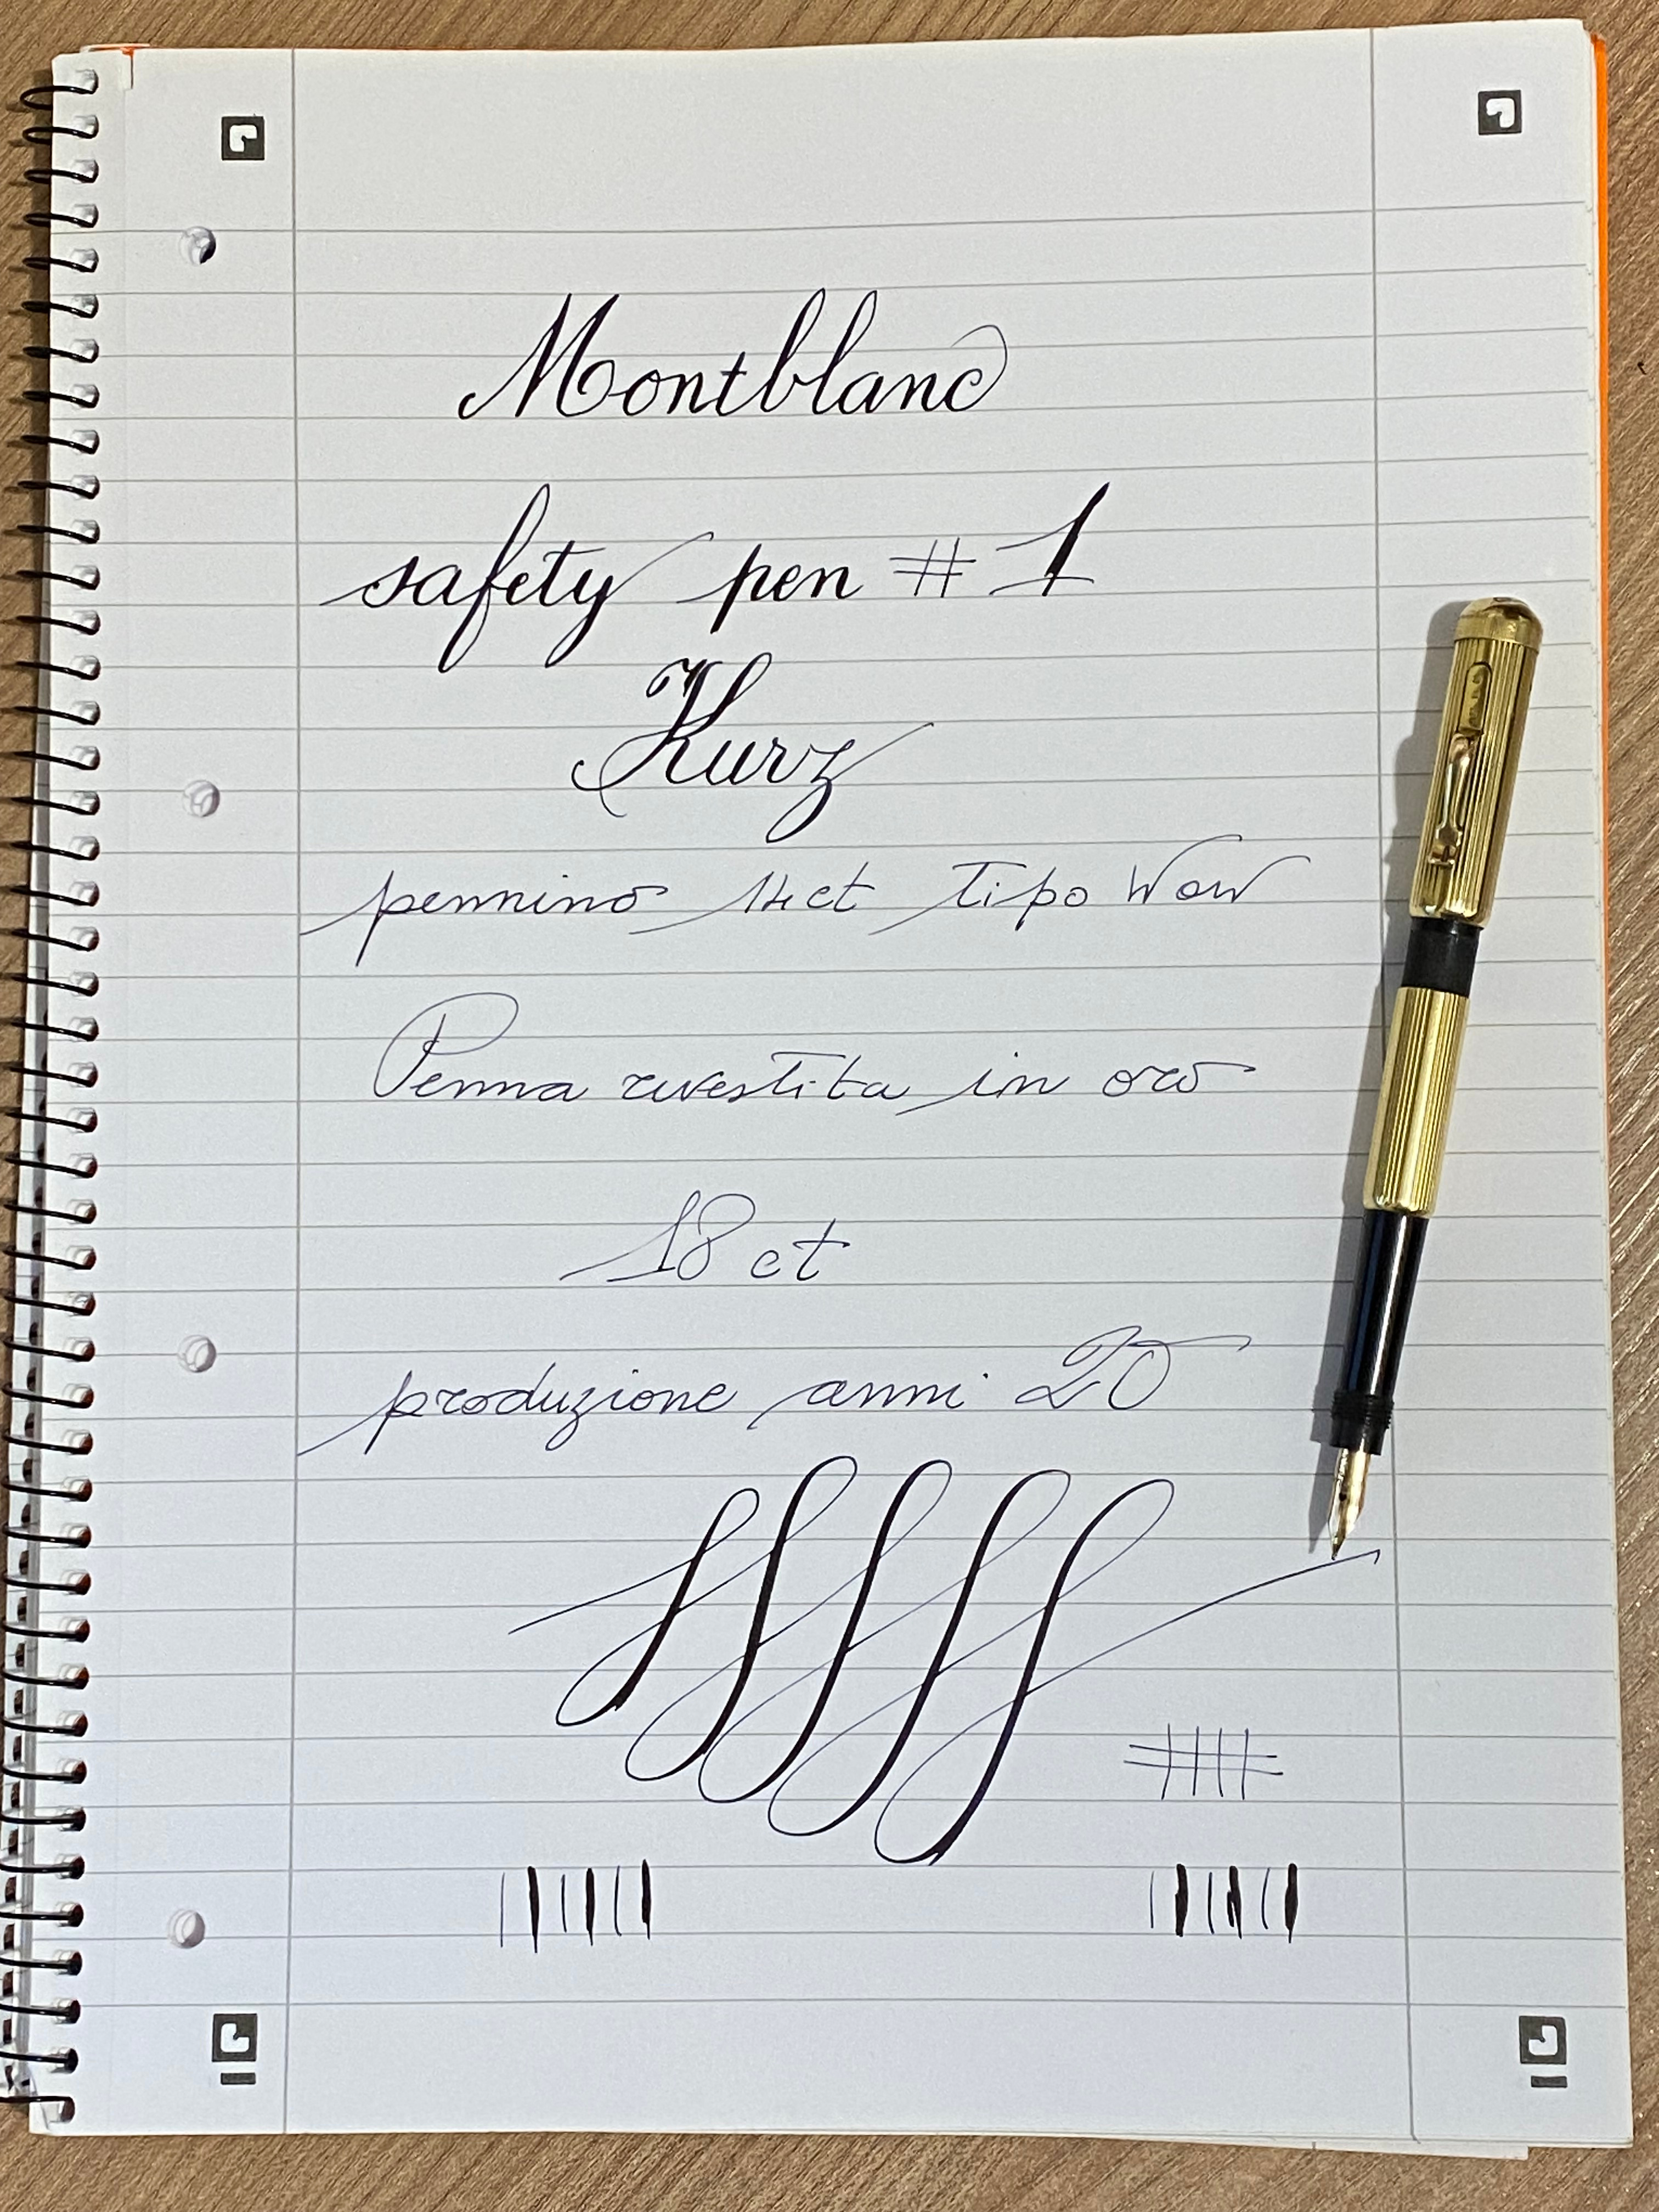 Montblanc
safety pen # 1
Kurz
pennino 14ct tipo Wow
Penna rivestita in oro
18 ct
produzione anni 20